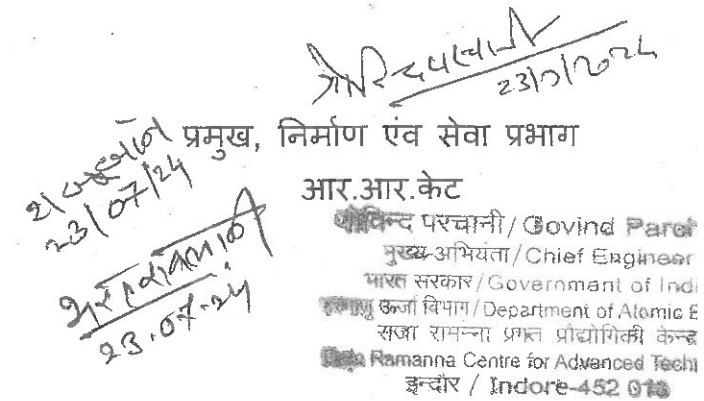 23/7/2024
प्रमुख, निर्माण एंव सेवा प्रभाग
23/07/24
आर.आर.केट
गोविन्द परचानी/Govind Parc
मुख्य अभियंता/Chief Engineer
भारत सरकार/Government of Indi
23.07.24
परमाणु ऊर्जा विभाग/Department of Atomic E
राजा रामन्ना प्रगत प्रौद्योगिकी केन्द्र
Raja Ramanna Centre for Advanced Techn
इन्दौर / Indore-452 013